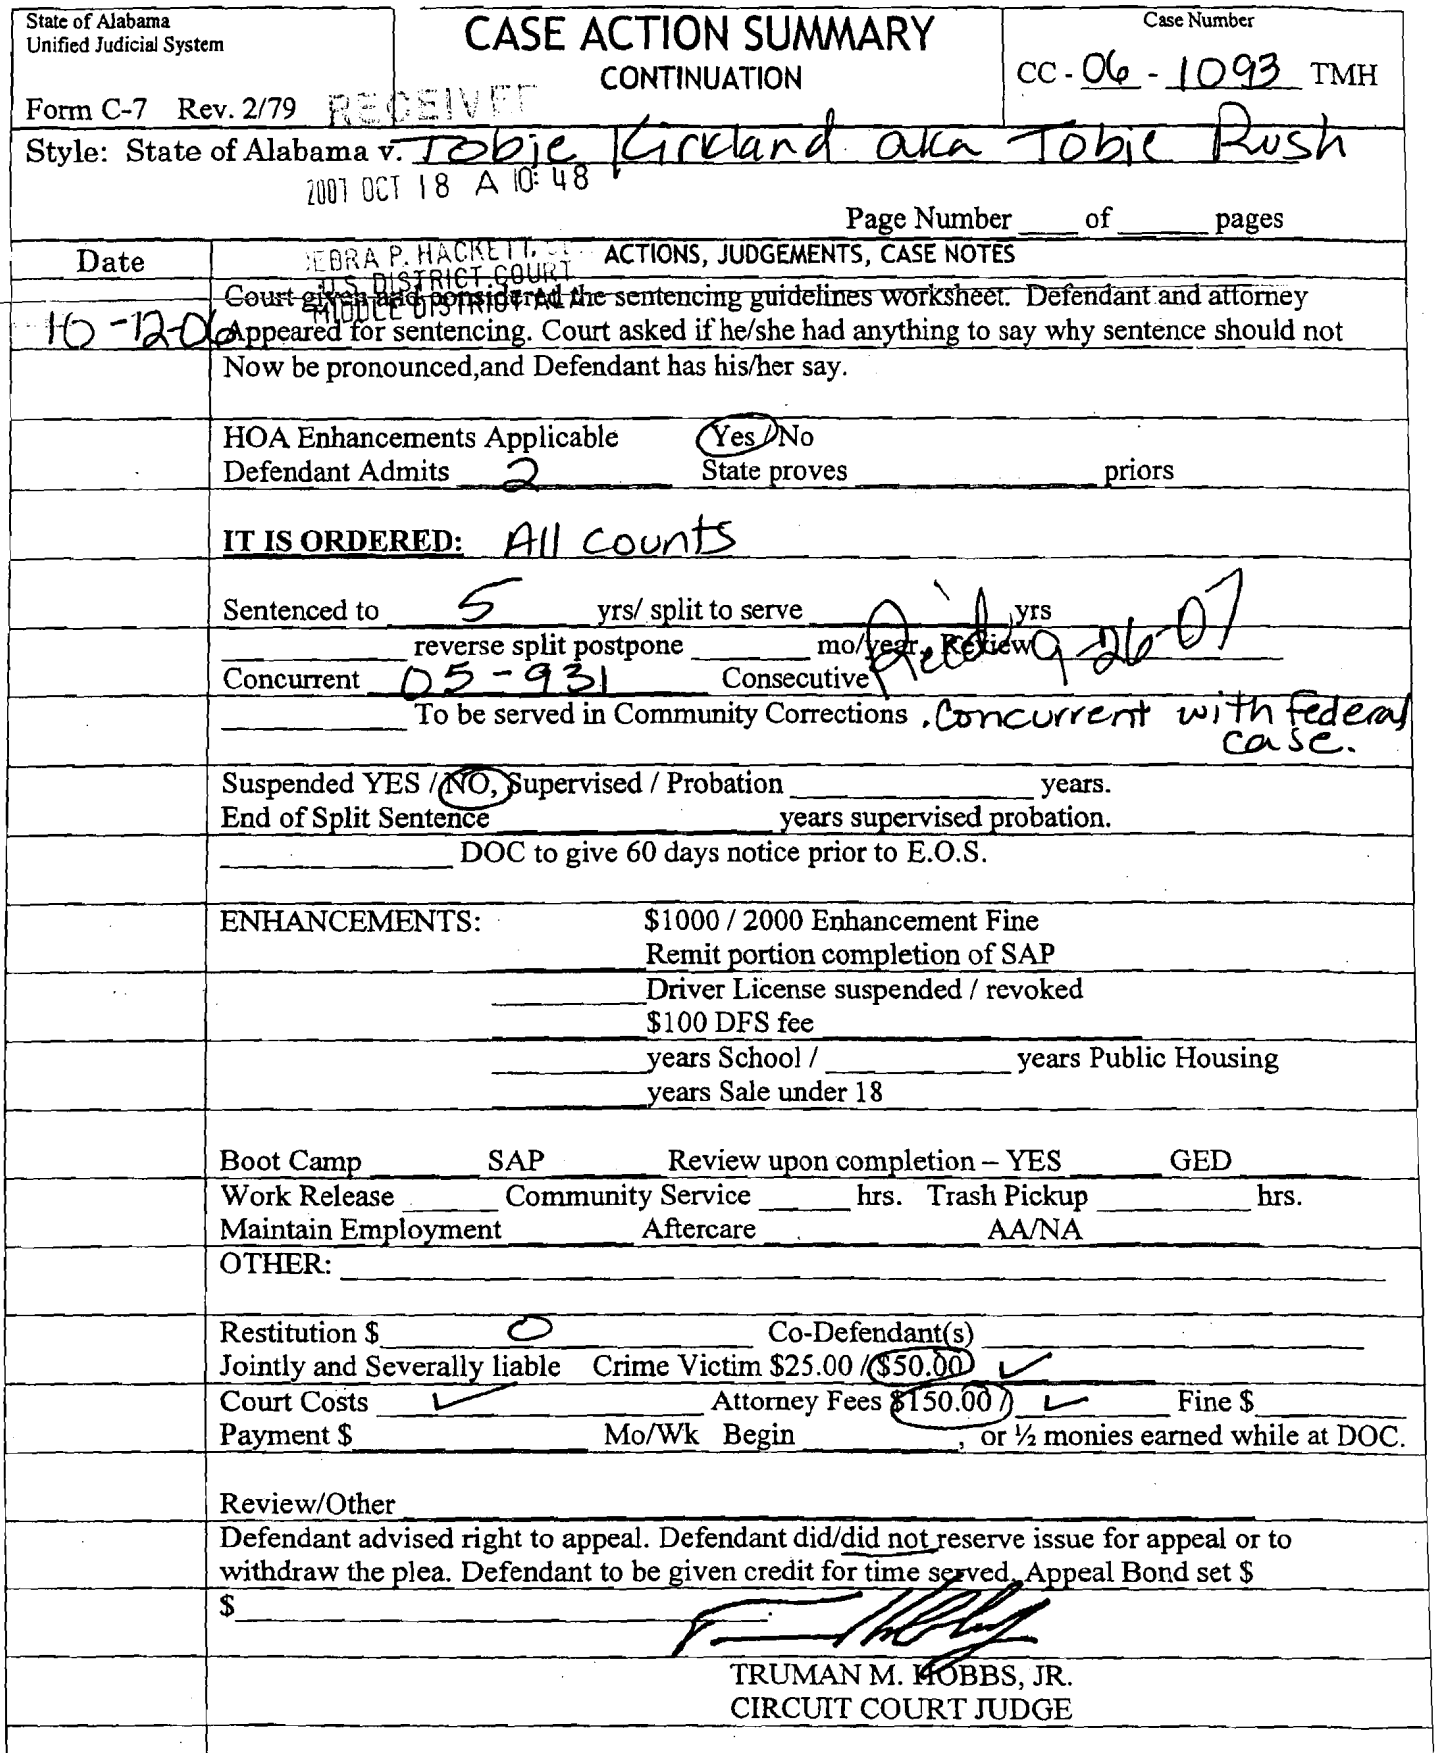 State of Alabama
Unified Judicial System
Form C-7 Rev. 2/79
CASE ACTION SUMMARY
CONTINUATION
Case Number
CC - 06 - 1093 TMH
RECEIVED
Style: State of Alabama v. Tobie Kirkland aka Tobie Rush
2007 OCT 18 A 10:48
Page Number ____ of ____ pages
DEBRA P. HACKETT,
U.S. DISTRICT COURT
MIDDLE DISTRICT ALA
Date ACTIONS, JUDGEMENTS, CASE NOTES
Court given and considered the sentencing guidelines worksheet. Defendant and attorney
10-12-06 Appeared for sentencing. Court asked if he/she had anything to say why sentence should not
Now be pronounced,and Defendant has his/her say.
HOA Enhancements Applicable Yes / No
Defendant Admits 2 State proves ____ priors
IT IS ORDERED: All counts
Sentenced to 5 yrs/ split to serve ____ yrs
____ reverse split postpone ____ mo/year, Review 9-26-07
Concurrent 05-931 Consecutive
____ To be served in Community Corrections . Concurrent with federal
case.
Suspended YES / NO, Supervised / Probation ____ years.
End of Split Sentence ____ years supervised probation.
____ DOC to give 60 days notice prior to E.O.S.
ENHANCEMENTS: $1000 / 2000 Enhancement Fine
____ Remit portion completion of SAP
____ Driver License suspended / revoked
____ $100 DFS fee ____
____ years School / ____ years Public Housing
____ years Sale under 18
Boot Camp ____ SAP ____ Review upon completion – YES ____ GED ____
Work Release ____ Community Service ____ hrs. Trash Pickup ____ hrs.
Maintain Employment ____ Aftercare ____ AA/NA ____
OTHER: ____
Restitution $ 0 Co-Defendant(s) ____
Jointly and Severally liable Crime Victim $25.00 / $50.00 ✓
Court Costs ✓ Attorney Fees $150.00 / ✓ Fine $ ____
Payment $ ____ Mo/Wk Begin ____, or ½ monies earned while at DOC.
Review/Other ____
Defendant advised right to appeal. Defendant did/did not reserve issue for appeal or to
withdraw the plea. Defendant to be given credit for time served. Appeal Bond set $
$ ____
TRUMAN M. HOBBS, JR.
CIRCUIT COURT JUDGE